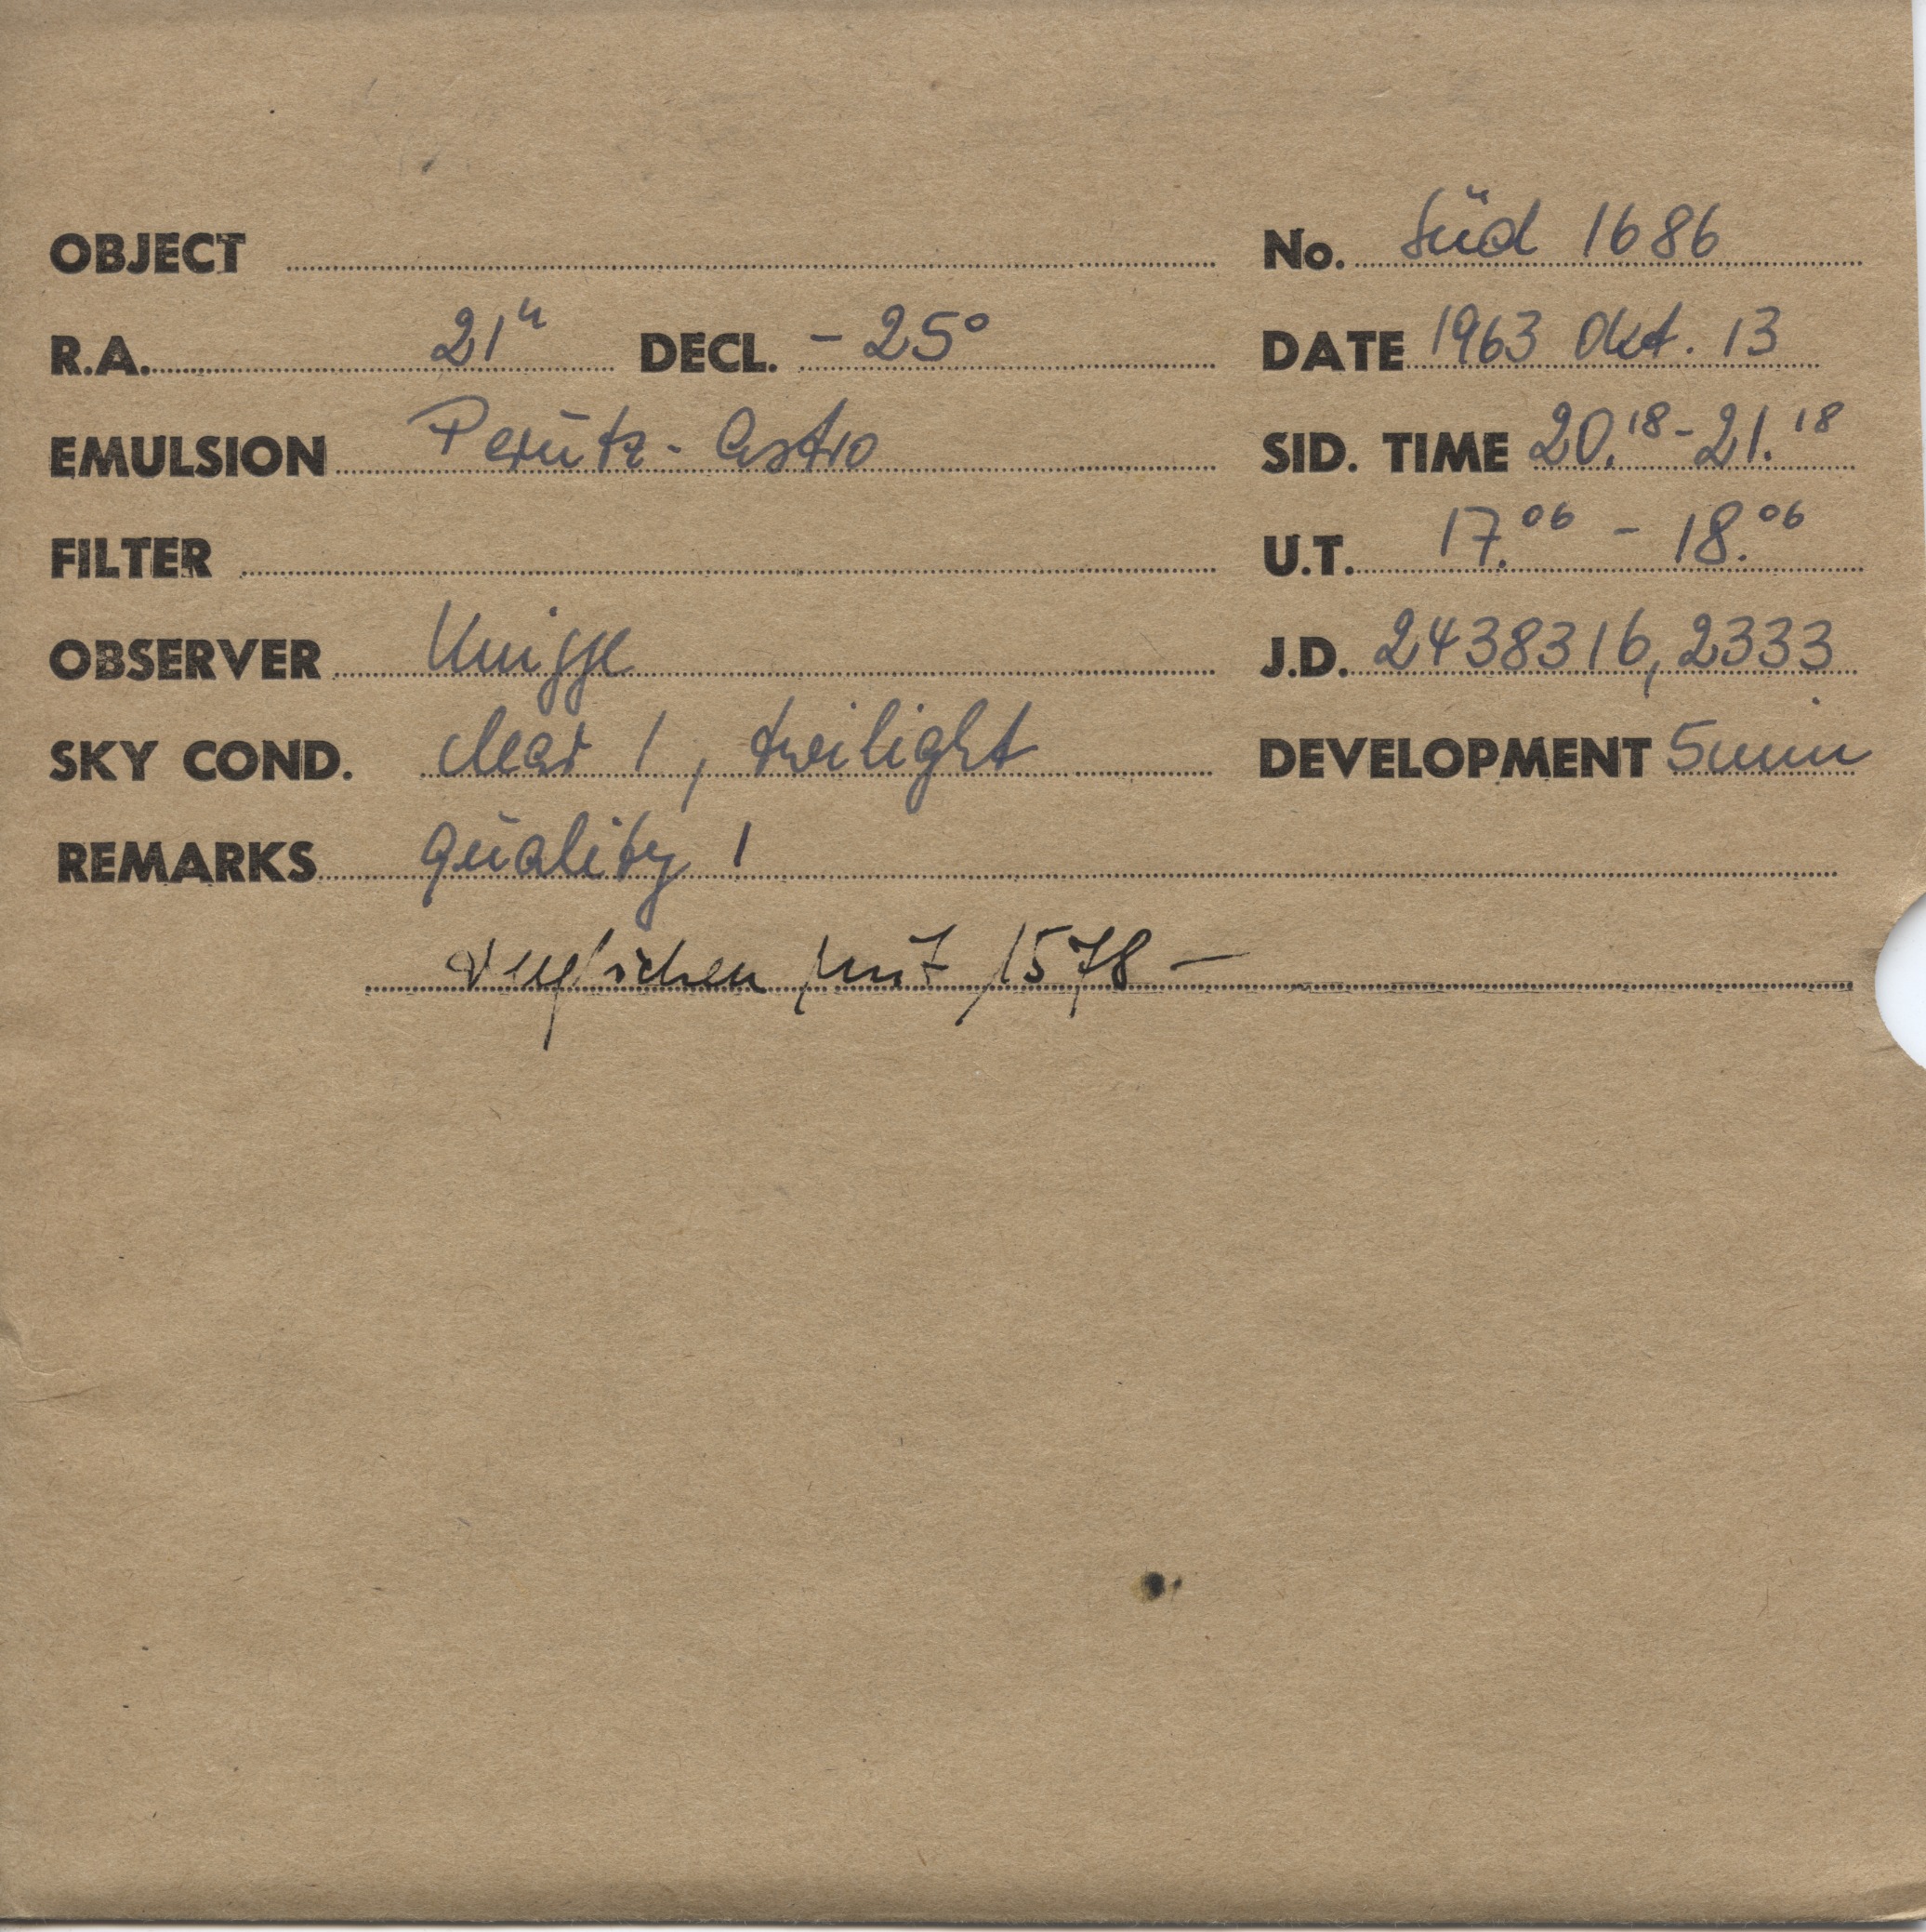 OBJECT No. Süd 1686
R.A. 21h DECL. -25° DATE 1963 Okt. 13
EMULSION Perutz-Astro SID. TIME 20.18-21.18
FILTER U.T. 17.06 - 18.06
OBSERVER Knigge J.D. 2438316,2333
SKY COND. clear 1, twilight DEVELOPMENT 5min
REMARKS quality 1
verglichen mit 1578 -